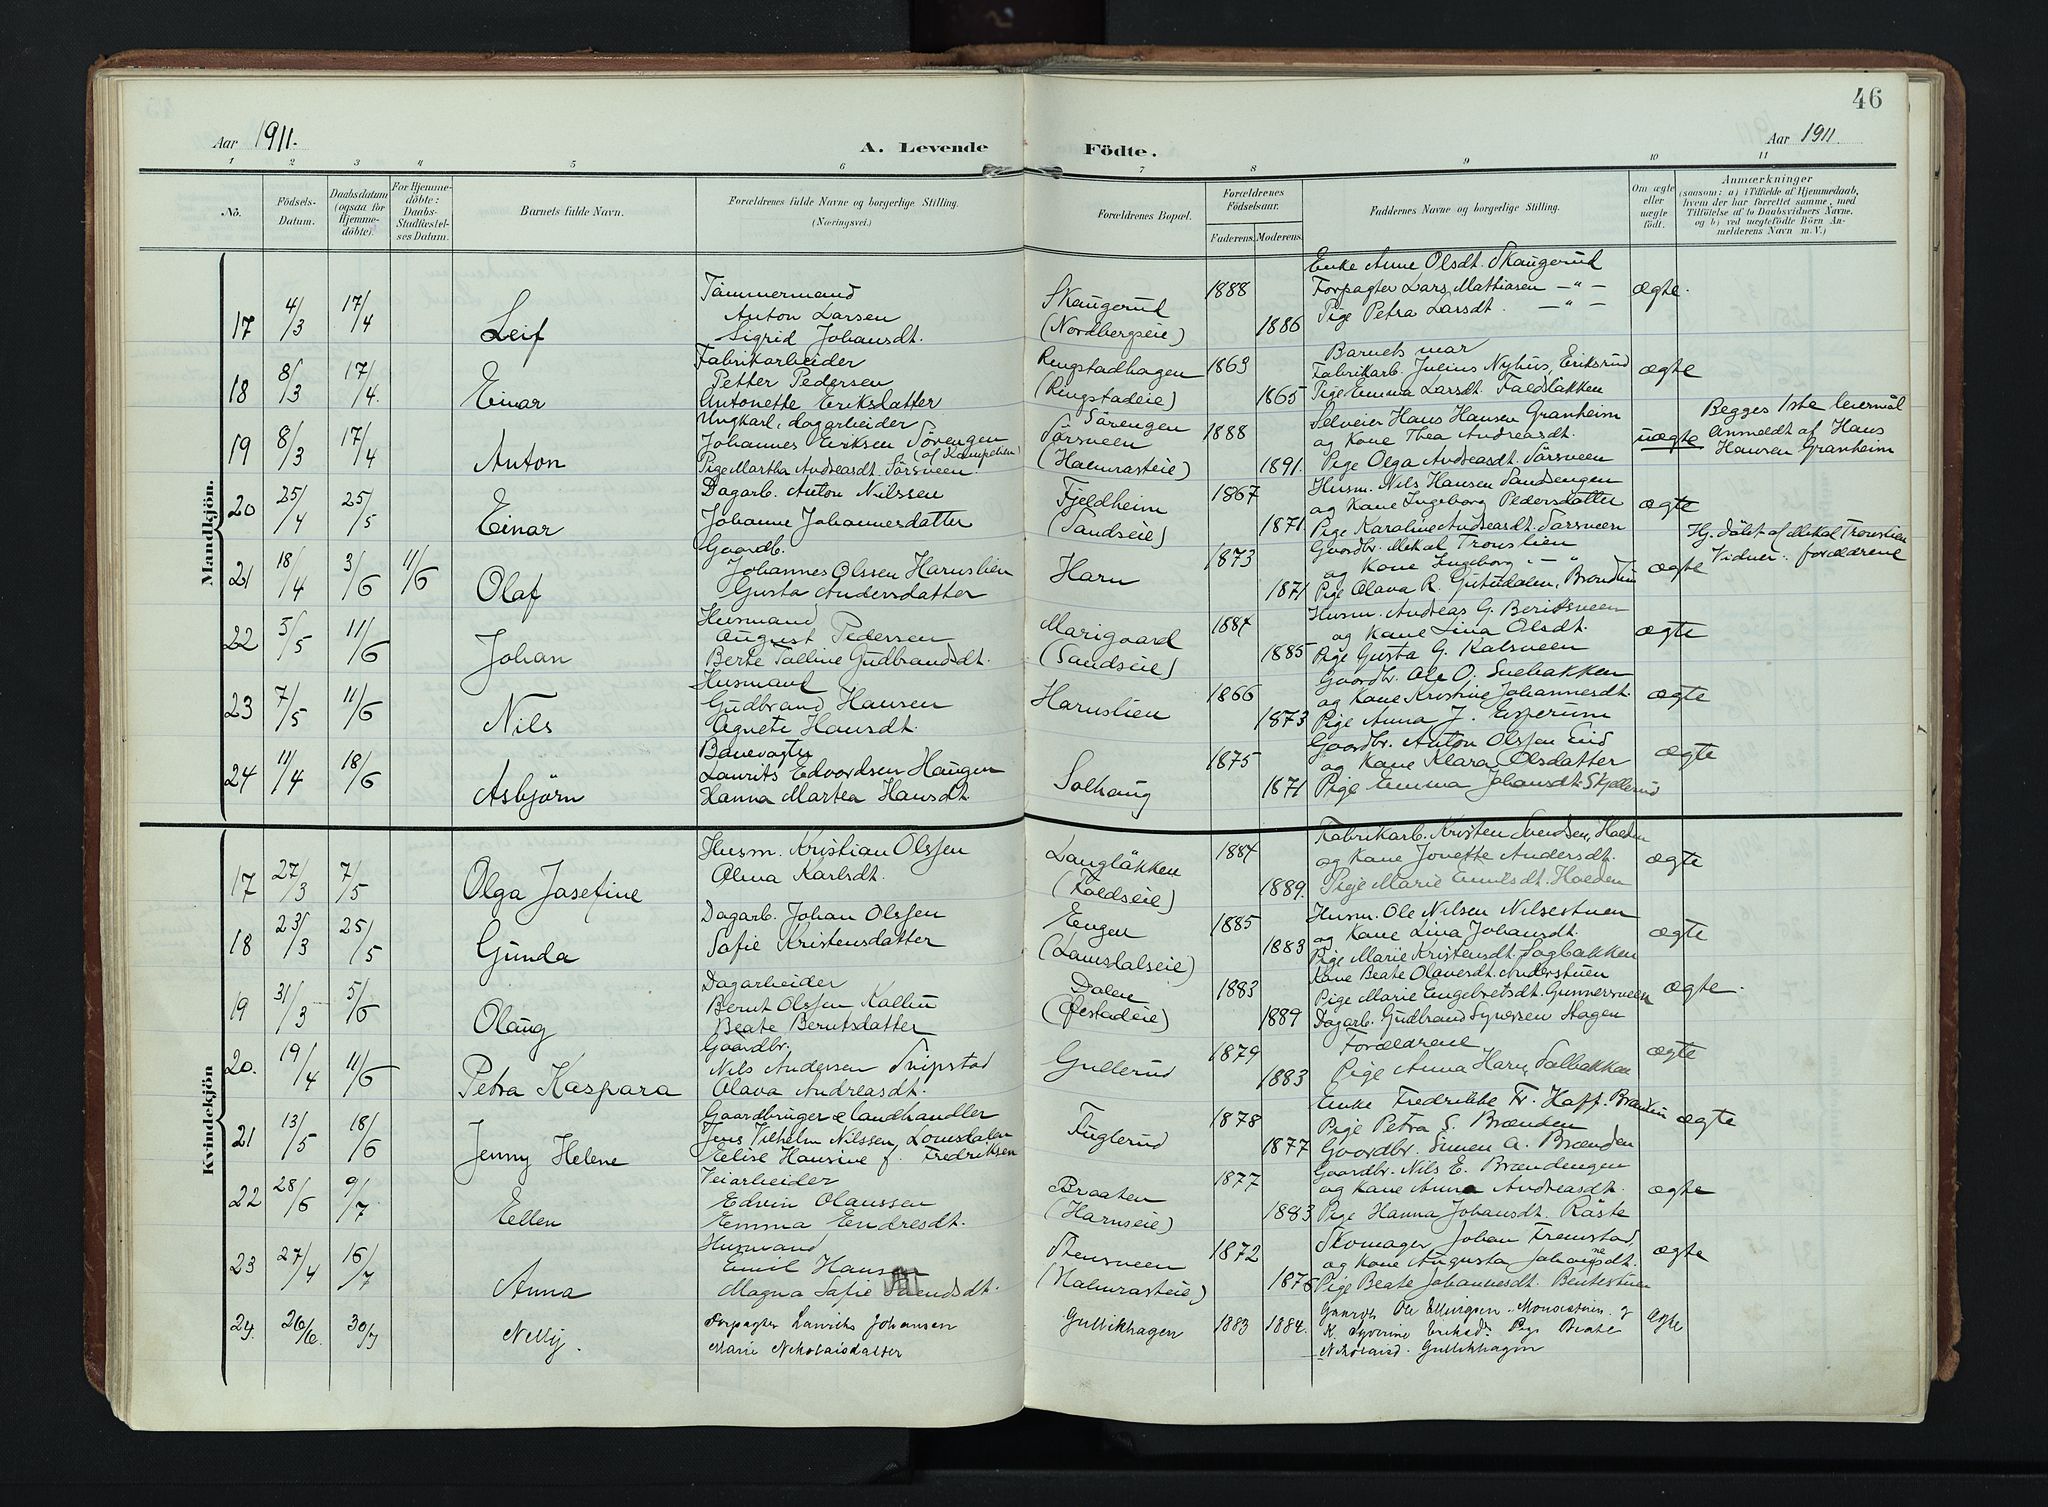 46
Aar 1911.
A. Levende
Födte.
Aar 1911.
1 2 3 4 5 6 7 8 9 10 11
No.
Födsels-Datum.
Daabsdatum (ogsaa for Hjemmedöbte).
For Hjemmedöbte: Daabs-Stadfæstelses Datum.
Barnets fulde Navn.
Forældrenes fulde Navne og borgerlige Stilling.
(Næringsvei.)
Forældrenes Bopæl.
Forældrenes Födselsaar.
Faderens. Moderens.
Faddernes Navne og borgerlige Stilling.
Om ægte eller uægte födt.
Anmærkninger
(saasom: a) i Tilfælde af Hjemmedaab, hvem der har forrettet samme, med Tilföielse af to Daabsvidners Navne, og b) ved uegtefödte Börn Anmelderens Navn m. V.)
Mandkjön.
17 4/3 17/4 Leif
Tömmermand
Anton Larsen
Sigrid Johansdt.
Skaugerud
(Nordbergseie)
1888
1886
Enke Anne Olsdt. Skaugerud
Forpagter Lars Mathiasen — " —
Pige Petra Larsdt. — " —
ægte.
18 8/3 17/4. Einar
Fabrikarbeider
Petter Pedersen
Antonette Eriksdatter
Ringstadhagen
(Ringstadeie)
1863
1865
Barnets mor
Fabrikarb. Julius Nyhus, Eriksrud
Pige Emma Larsdt. Faldslökken
ægte
19 8/3 17/4 Anton
Ungkarl, dagarbeider
Johannes Eriksen Sörengen
(af Kampelien)
Pige Martha Andreasdt. Sörsveen
Sörengen
Sörsveen
(Halmrasteie)
1888
1891.
Selveier Hans Hansen Granheim
og Kone Thea Andreasdt.
Pige Olga Andreasdt. Sörsveen
uægte
Begges 1ste leiermål
Anmeldt af Hans
Hansen Granheim
20 25/4 25/5 Einar
Dagarb. Anton Nilssen
Johanne Johannesdatter
Fjeldheim
(Sandseie)
1867
1871
Husm. Nils Hansen Sandsengen
og Kone Ingeborg Pedersdatter
Pige Karoline Andreasdt. Sörsveen
ægte
21 18/4 3/6 11/6 Olaf
Gaardb.
Johannes Olssen Harnslien
Gusta Andersdatter
Harn
1873
1871
Gaardbr. Mikal Tronslien
og Kone Ingeborg — " —
Pige Olava R. Gutudalen,
ægte
Hj. döbt af Mikal Tronslien
Vidner: forældrene
22 5/5 11/6 Johan
Husmand
August Pedersen
Berte Talline Gudbrandsdt.
Marigaard
(Sandseie)
1884
1885
Husm. Andreas G. Beritsveen
og Kone Lina Olsdt.
Pige Gusta G. Kalsveen
ægte
23 7/5 11/6 Nils
Husmand
Gudbrand Hansen
Agnete Hansdt.
Harnslien
1866
1873
Gaardbr. Ole O. Snebakken
og Kone Kristine Johannesdt.
Pige Anna J. Esperum
ægte
24 11/4 18/6 Asbjörn
Banevogter
Laurits Edvardsen Haugen
Hanna Martea Hansdt.
Solhaug
1875
1871
Gaardbr. Anton Olsen Eid
og Kone Klara Olsdatter
Pige Emma Johansdt. Skjellerud
ægte
Kvindekjön
17 27/3 7/5 Olga Josefine
Husm. Kristian Olssen
Alma Karlsdt.
Langlökken
(Foldseie)
1884
1889.
Fabrikarb. Kristen Svendsen, Holden
og Kone Jonette Andersdt.
Pige Marie Emilsdt. Holden
ægte
18 23/3 25/5 Gunda
Dagarb. Johan Olssen
Sofie Kristensdatter
Engen
(Lomsdalseie)
1885
1883
Husm. Ole Nilsen Nilsestuen
og Kone Lina Johansdt.
Pige Marie Kristensdt. Sagbakken
ægte
19 31/3 5/6 Olaug
Dagarbeider
Bernt Olssen Kallin
Beate Berntsdatter
Dalen
(Ofestadeie)
1883
1889
Kone Beate Olavesdt. Anderstuen
Pige Marie Engebretsdt. Gunnersveen
Dagarb. Gudbrand Syversen Hagen
ægte.
20. 19/4 11/6 Petra Kaspara
Gaardbr.
Nils Andersen Snipstad
Olava Andreasdt.
Gullerud
1879
1883
Forældrene
Pige Anna Harn, Solbakken
ægte
21 13/5 18/6 Jenny Helene
Gaardbruger & landhandler
Jens Vilhelm Nilssen, Lomsdalen
Elise Hansine f. Fredriksen
Fuglerud
1878
1877
Enke Fredrikke Fr. Hoff.
Pige Petra S. Brænden
Gaardbr. Simen A. Brænden
ægte
22 28/6 9/7 Ellen
Veiarbeider
Edvin Olaussen
Emma Endresdt.
Braaten
(Harnseie)
1877
1883
Gaardbr. Nils E. Brændengen
og Kone Anna Andreasdt.
Pige Hanna Johansdt. Röste
ægte
23 27/4 16/7 Anna
Husmand
Emil Hansen
Magna Sofie Svendsdt.
Stensveen
(Halmrasteie)
1872
1876
Skomager Johan Fremstad,
og Kone Augusta Johannesdt.
Pige Beate Johannesdt. Bentestuen
ægte
24. 26/6. 30/7 Nelly.
Forpagter Laurits Johansen
Marie Nikolaisdatter
Gullikhagen
1883 1884.
Gaardb. Ole Ellingsen Monsestuen og
K. Syverine Eriksd. Pige Beate
Nikolaisd. Gullikhagen
ægte